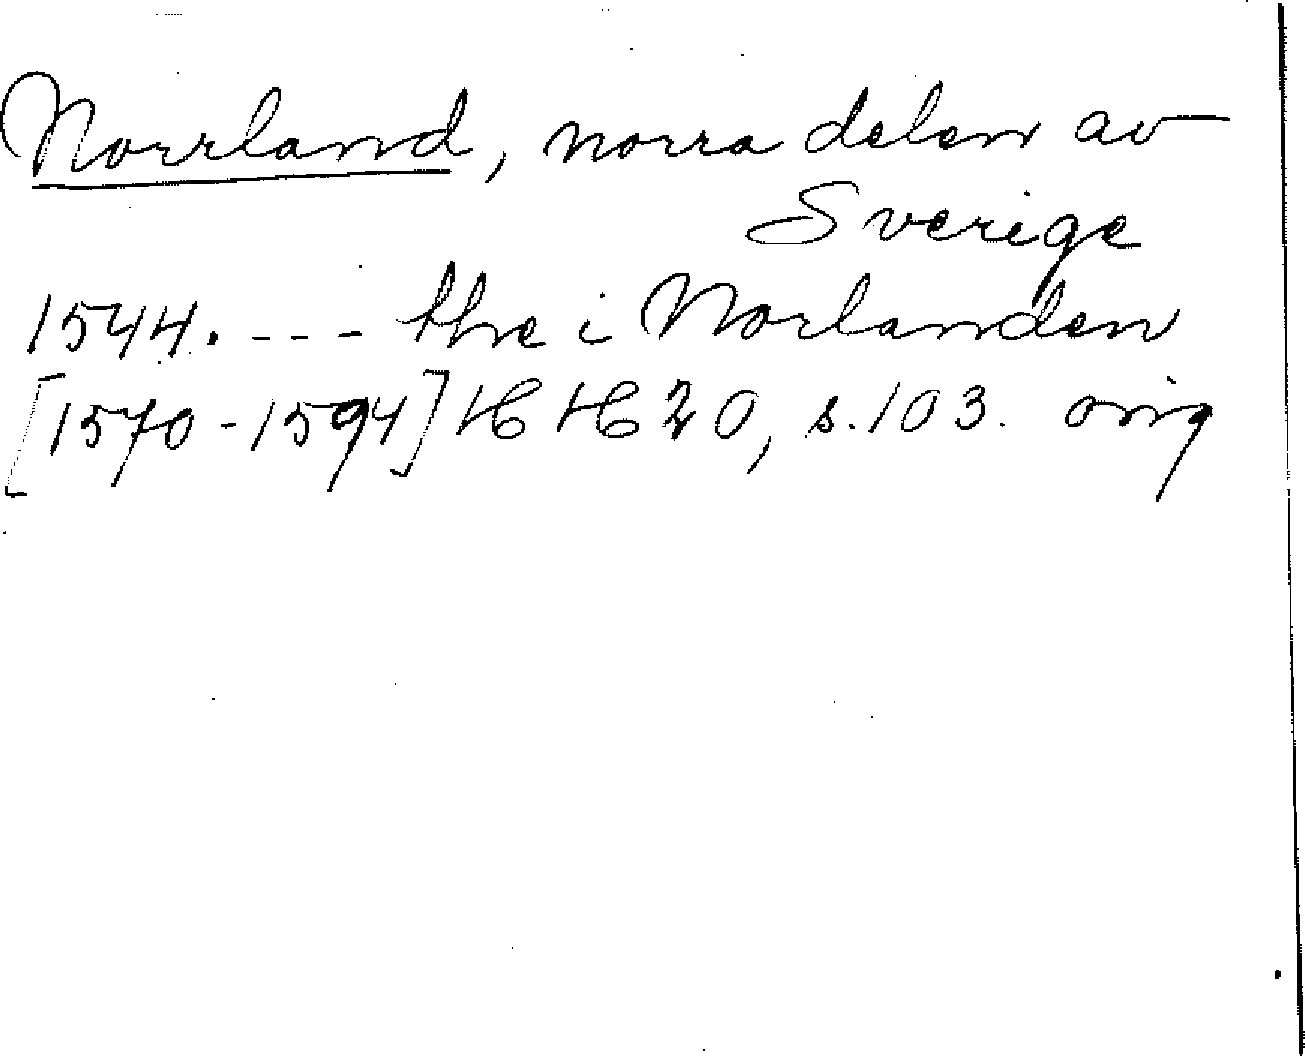 Norrland, norra delen av
Sverige
1544. --- the i Norlanden
[1570-1594] HH 20, s. 103. orig